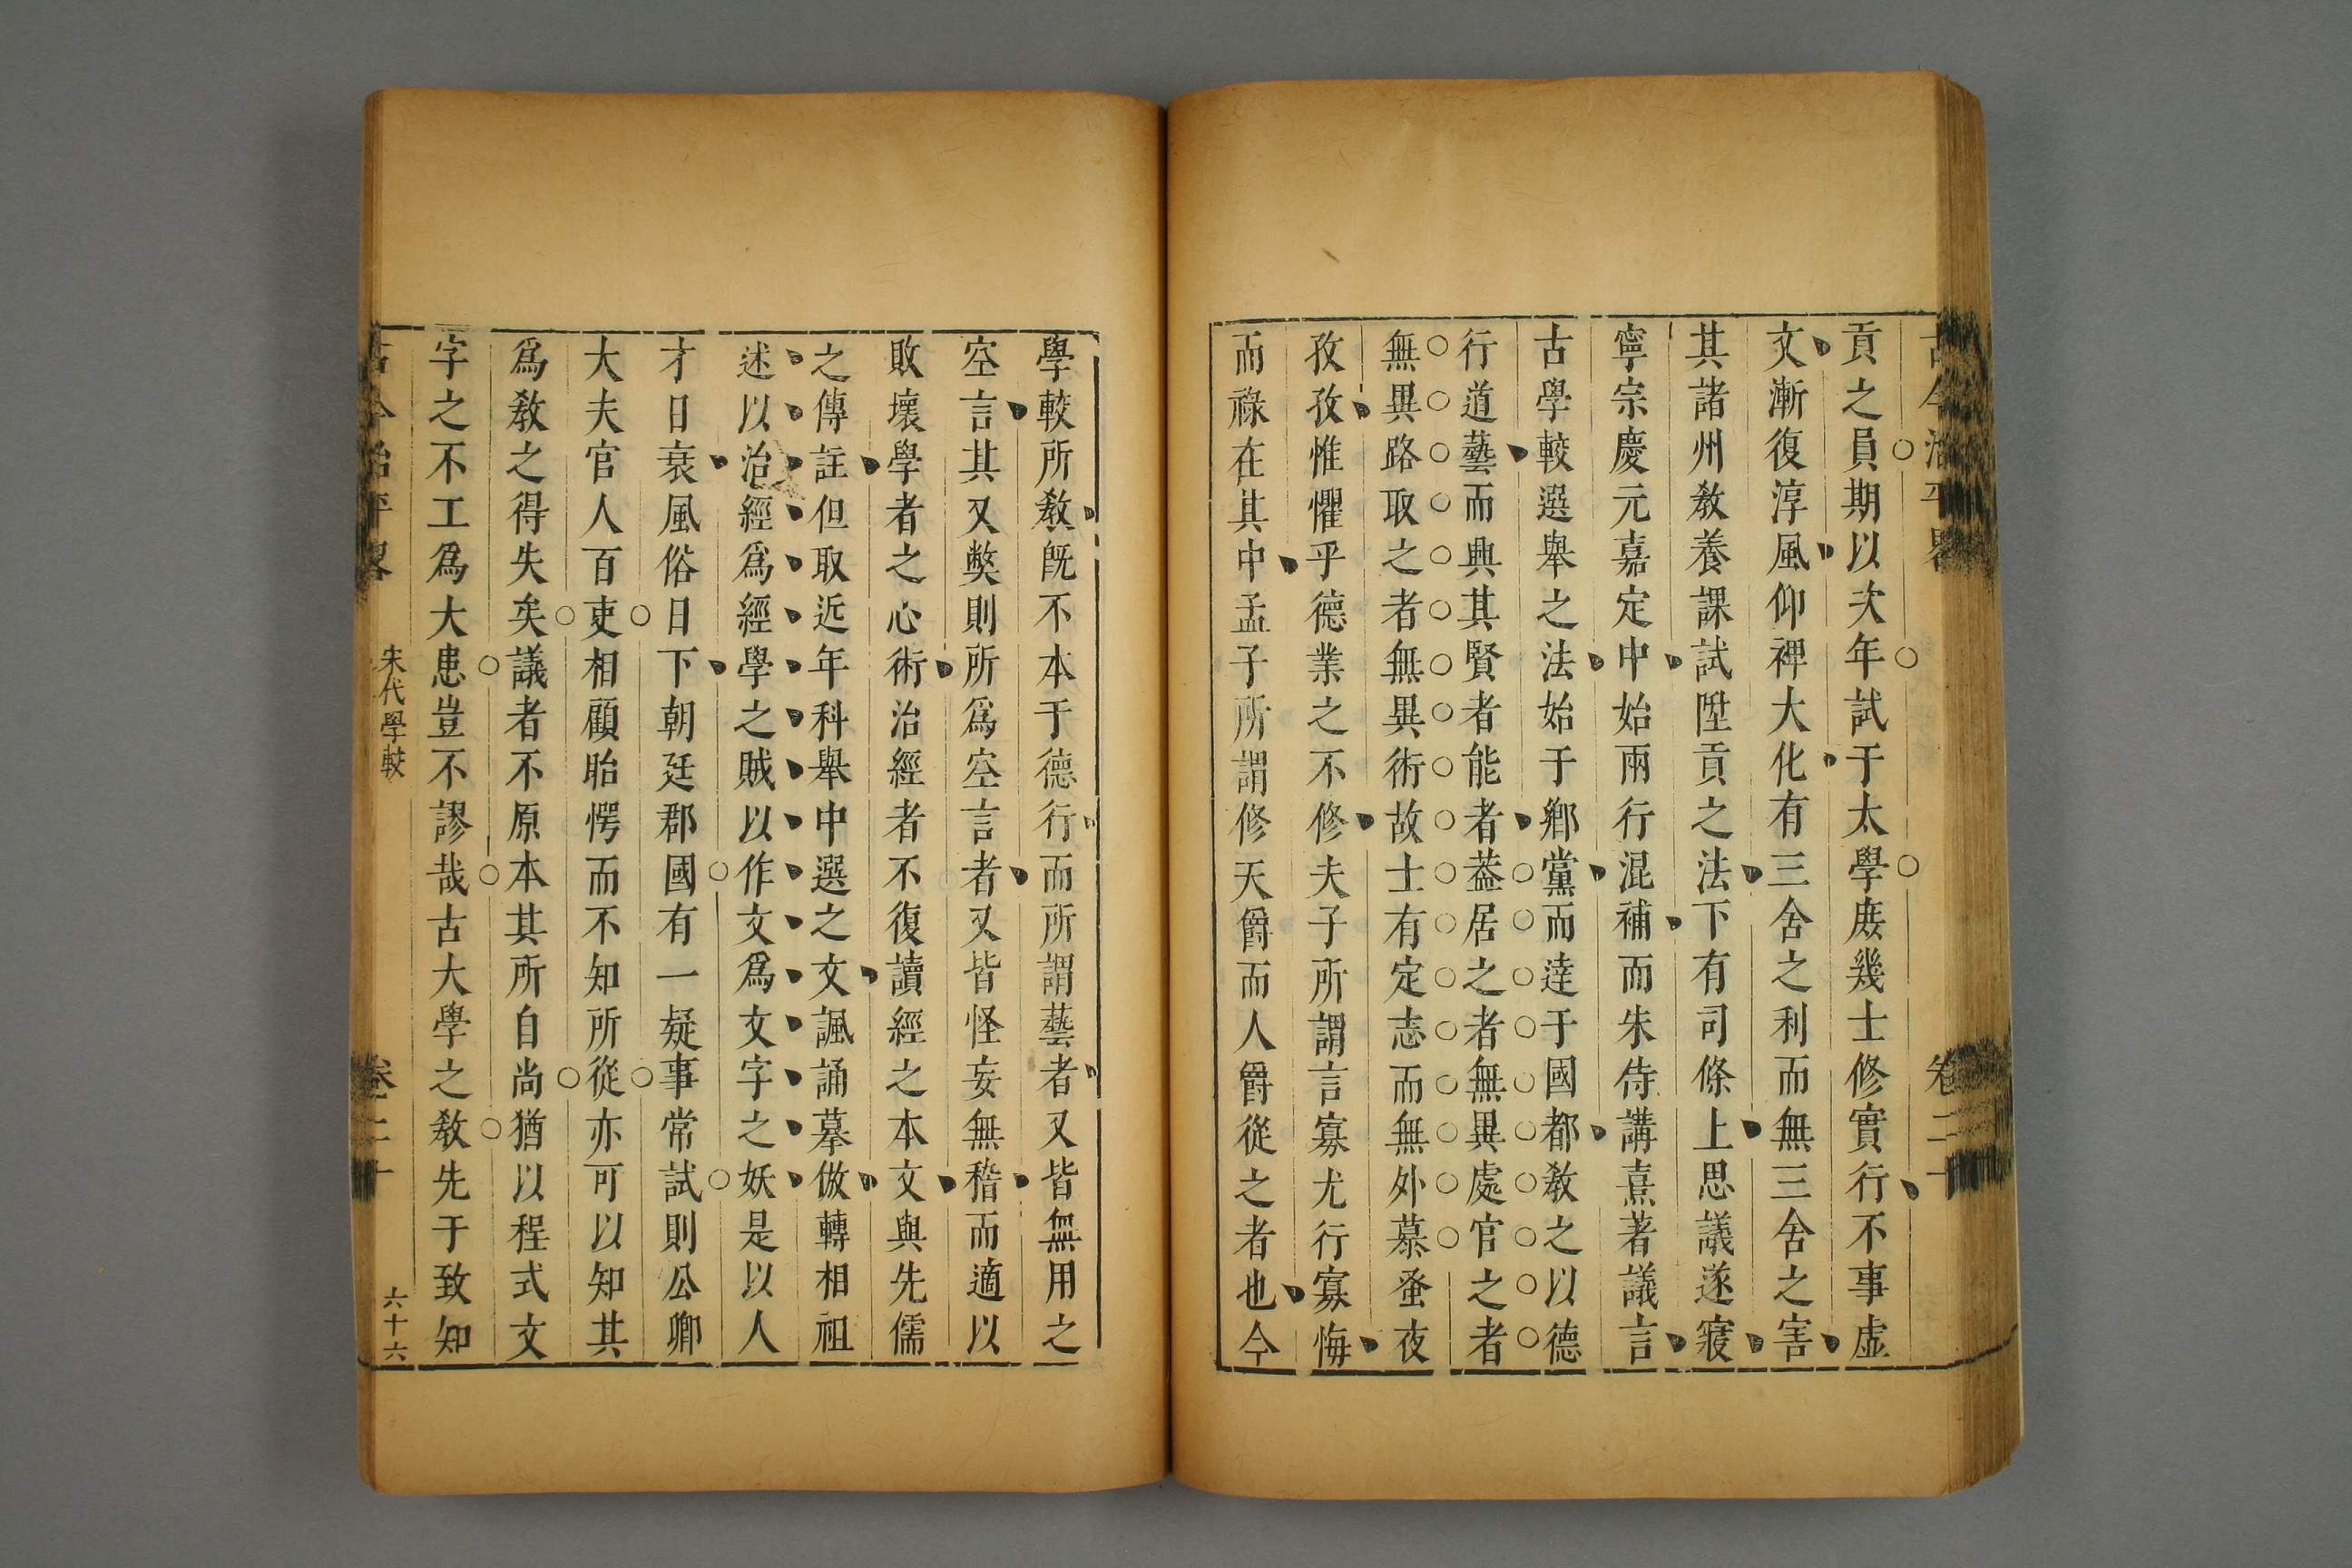 古今治平畧
卷二十
貢之員期以次年試于太學庻幾士修實行不事虛
文漸復淳風仰裨大化有三舍之利而無三舍之害
其諸州教養課試陞貢之法下有司條上思議遂寢
寧宗慶元嘉定中始兩行混補而朱侍講熹著議言
古學較選舉之法始于鄉黨而逹于國都教之以德
行道藝而興其賢者能者葢居之者無異處官之者
無異路取之者無異術故士有定志而無外慕蚤夜
孜孜惟懼乎德業之不修夫子所謂言寡尤行寡悔
而祿在其中孟子所謂修天爵而人爵從之者也今
學較所教旣不本于德行而所謂藝者又皆無用之
空言其又獘則所爲空言者又皆怪妄無稽而適以
敗壞學者之心術治經者不復讀經之本文與先儒
之傳註但取近年科舉中選之文諷誦摹倣轉相祖
述以治經爲經學之賊以作文爲文字之妖是以人
才日衰風俗日下朝廷郡國有一疑事常試則公卿
大夫官人百吏相顧眙愕而不知所從亦可以知其
爲教之得失矣議者不原本其所自尚猶以程式文
字之不工爲大患豈不謬哉古大學之教先于致知
古今治平畧
宋代學較
卷二十
六十六